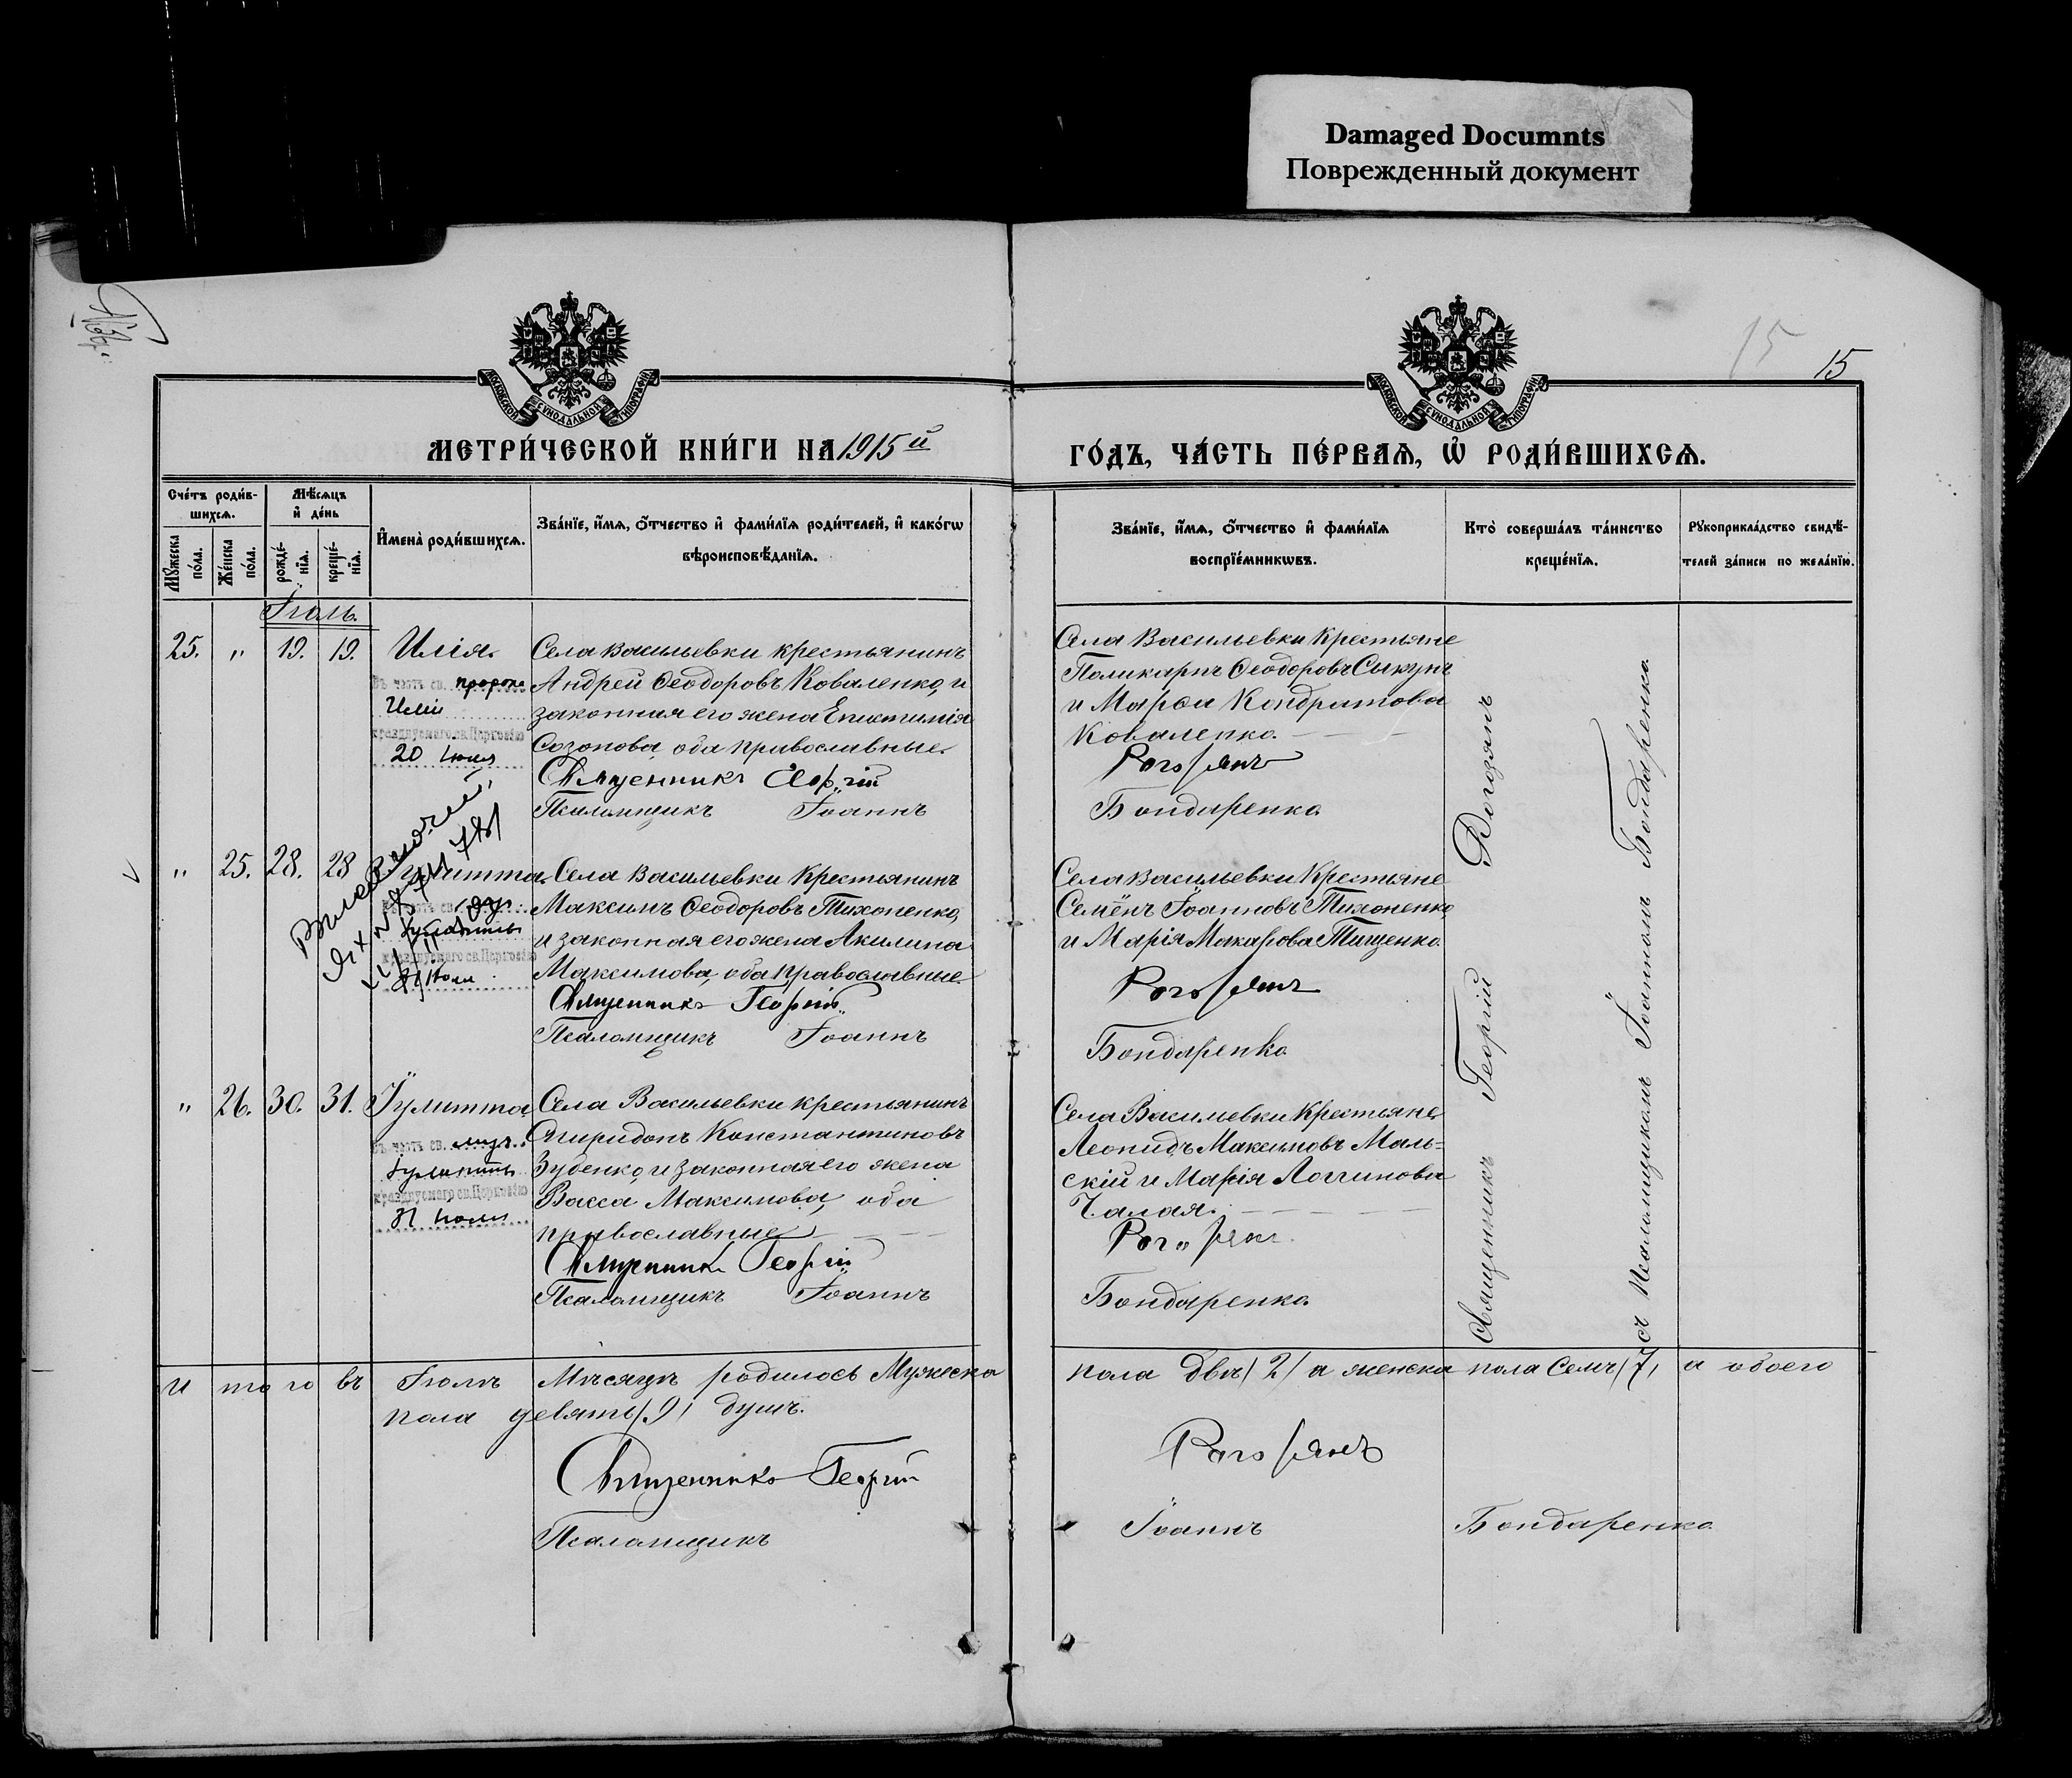 Damaged Documnts
Поврежденный документ
15
15
МОСКОВСКОЙ СУНОДАЛЬНОЙ ТИПОГРАФІИ
МОСКОВСКОЙ СУНОДАЛЬНОЙ ТИПОГРАФІИ
МЕТРИ́ЧЕСКОЙ КНИ́ГИ НА 1915й
ГО́ДЪ, ЧА́СТЬ ПЕ́РВАѦ, Ѡ҆ РОДИ́ВШИХСѦ.
Сче́тъ роди́в-
шихсѧ.
Мѣ́сѧцъ
и҆ де́нь
Мꙋ́жеска
по́ла.
Же́нска
по́ла.
рожде́-
нїѧ.
креще́-
нїѧ.
И҆мена̀ роди́вшихсѧ.
Зва́нїе, и҆́мѧ, ѻ҆́тчество и҆ фами́лїѧ роди́телей, и҆ како́гѡ
вѣроисповѣ́данїѧ.
Зва́нїе, и҆́мѧ, ѻ҆́тчество и҆ фами́лїѧ
воспрїе́мникѡвъ.
Кто̀ соверша́лъ та́инство
креще́нїѧ.
Рꙋкоприкла́дство свидѣ́-
телей за́писи по жела́нїю.
Іюль.
25. " 19. 19. Илія.
Въ честь св. пророка
Иліи
празднуемаго св. Церковью
20 Іюля
Села Васильевки крестьянинъ
Андрей Ѳеодоровъ Коваленко, и
законная его жена Епистимія
Созонова, оба православные.
Священникъ Георгій
Псаломщикъ Іоаннъ
Села Васильевки Крестьяне
Поликарпъ Ѳеодоровъ Сикунъ
и Марѳа Кондратова
Коваленко.
Рогозянъ
Бондаренко
" 25. 28. 28 Іулитта.
Въ честь св. муч.
Іулитты
празднуемаго св. Церковью
31 Іюля
Села Васильевки Крестьянинъ
Максимъ Ѳеодоровъ Тихоненко,
и законная его жена Акилина
Максимова, оба православные.
Священникъ Георгій
Псаломщикъ Іоаннъ
Села Васильевки Крестьяне
Семёнъ Іоанновъ Тихоненко
и Марія Макарова Тищенко
Рогозянъ
Бондаренко
" 26. 30. 31. Іулитта.
Въ честь св. муч.
Іулитты
празднуемаго св. Церковью
31 Іюля
Села Васильевки крестьянинъ
Спиридонъ Константиновъ
Зубенко, и законная его жена
Васса Максимова, оба
православные
Священникъ Георгій
Псаломщикъ Іоаннъ
Села Васильевки Крестьяне
Леонидъ Максимовъ Маль-
скій и Марія Логгинова
Чалая.
Рогозянъ
Бондаренко
Священникъ Георгій Рогозянъ
съ Псаломщикомъ Іоанномъ Бондаренко
Итого въ Іюлѣ Мѣсяцѣ родилось Мужеска пола два /2/ а женска пола Семь /7/, а обоего
пола девять /9/ душъ.
Священникъ Георгій Рогозянъ
Псаломщикъ Іоаннъ Бондаренко